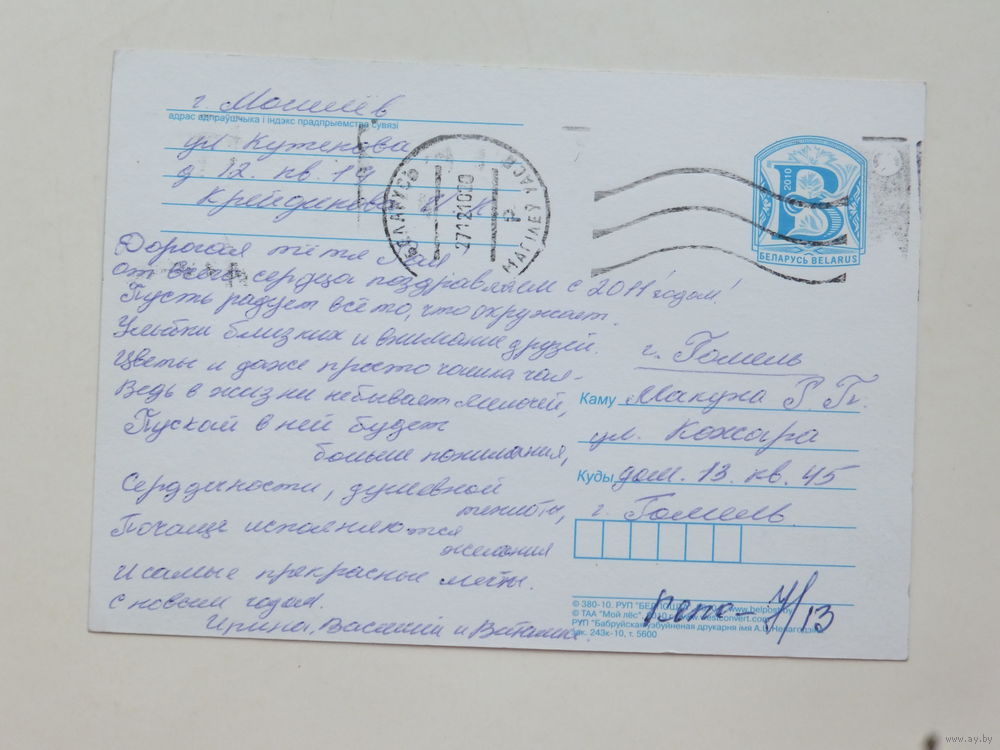 г. Могилёв
адрас адпраўшчыка і індэкс прадпрыемства сувязі
ул
д 12. кв.
БЕЛАРУСЬ
27121000
МАГІЛЕЎ
2010
БЕЛАРУСЬ BELARUS
Дорогая тётя Рая
от всего сердца поздравляем с 2011 годом!
Пусть радует всё то, что окружает.
Улыбки близких и внимание друзей.
Цветы и даже просто чашка чая-
Ведь в жизни небывает мелочей,
Пускай в ней будет
больше понимания,
Сердечности, душевной
теплоты,
Почаще исполняются
желания
И самые прекрасные мечты.
С новым годом.
Ирина, Василий и Виталик
г. Гомель
Каму Макуха Р. Г.
ул. Кожара
Куды дом. 13. кв. 45
г. Гомель.
© 380-10. РУП "БЕЛПОШТА" www.belpost.by
© ТАА "Мой лёс", 2010
РУП "Бабруйская узбуйненая друкарня імя А.Ц. Непагодзіна"
Зак. 243к-10, т. 5600
7/13
www.ay.by